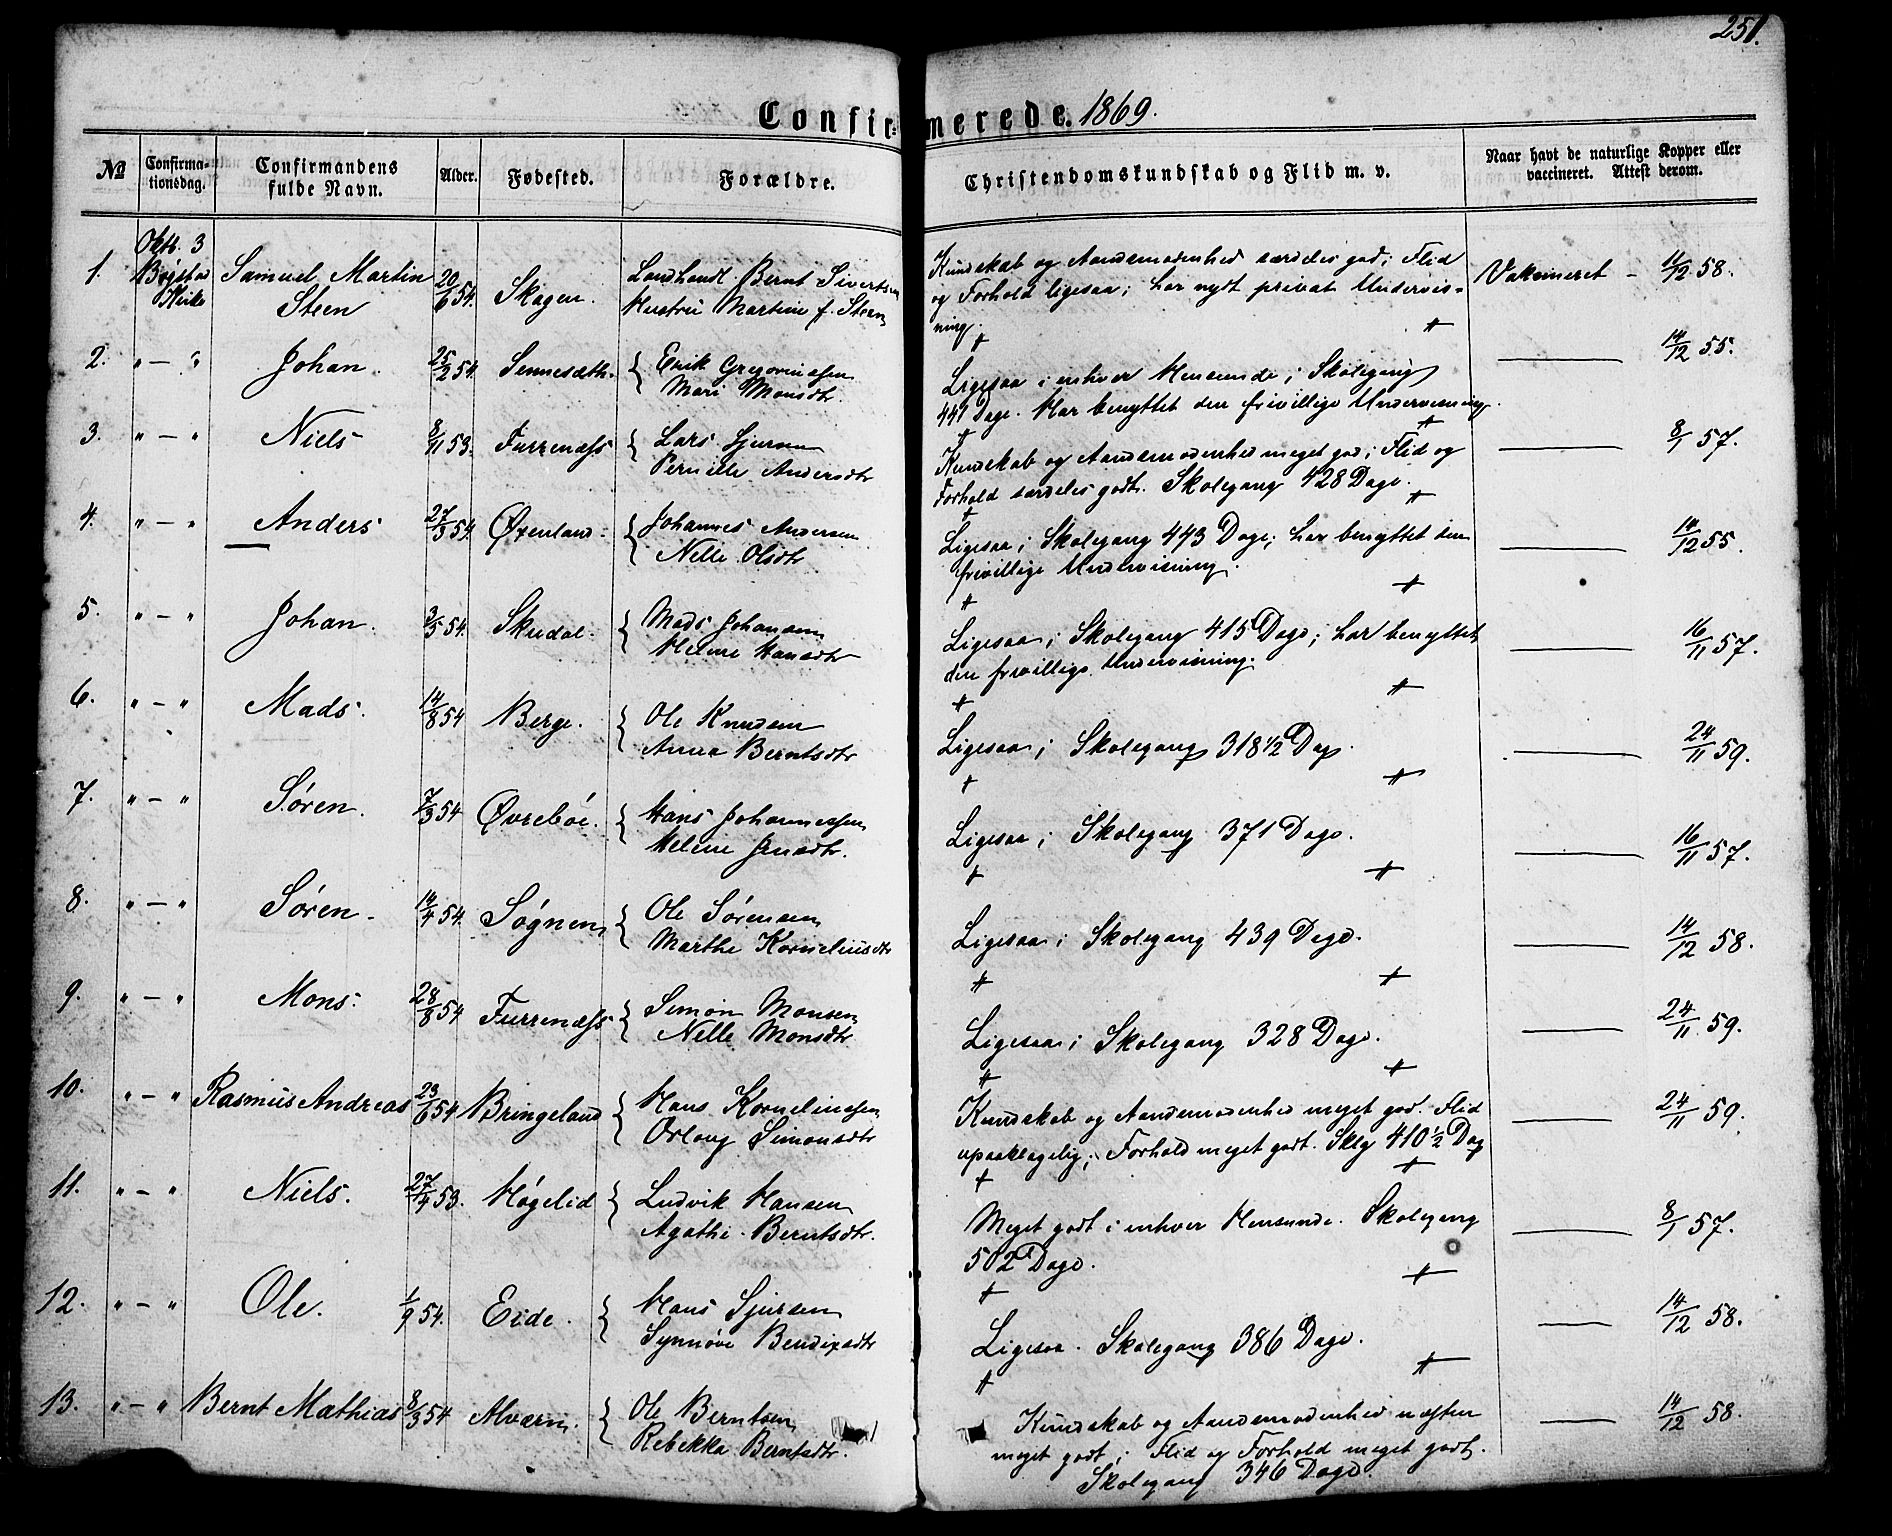 251.
Confirmerede. 1869.
No
Confirmationsdag.
Confirmandens fulde Navn.
Alder.
Fødested.
Forældre.
Christendomskundskab og Flid m. v.
Naar havt de naturlige Kopper eller vaccineret. Attest derom.
1.
Oktb. 3
Samuel Martin
Steen
20/6 54.
Skagen.
Landhandl. Bernt Sivertsen
Hustru Martine f. Steen
Kundskab og Aandsmodenhed særdeles god; Flid
og Forhold ligesaa; har nydt privat Undervis-
ning.
Vakcineret - 11/12 58.
2. " - " Johan. 25/2 54. Sennesæth.
Erik Gregoriussen
Mari Monsdtr.
Ligesaa i enhver Henseende; Skolegang
441 Dage. Har benyttet den frivillige Undervisning.
14/12 55.
3. " - " Niels 8/11 53. Furrenæss
Lars Sjursen
Pernille Andersdtr
Kundskab og Aandsmodenhed meget god; Flid og
Forhold særdeles godt. Skolegang 428 Dage.
8/1 57.
4. " - " Anders 27/3 54. Øxenland.
Johannes Andersen
Nelle Olsdtr
Ligesaa; Skolegang 443 Dage; har benyttet den
frivillige Undervisning.
14/12 55.
5. " - " Johan. 3/5 54. Skudal.
Mads Johansen
Helene Hansdtr
Ligesaa; Skolegang 415 Dage; har benyttet
den frivillige Undervisning.
16/11 57.
6. " - " Mads. 14/8 54 Berge.
Ole Knudsen
Anna Berntsdtr
Ligesaa; Skolegang 318 1/2 Dag.
24/11 59.
7. " - " Søren. 7/3 54 Øvrebøe.
Hans Johannessen
Helene Jensdtr.
Ligesaa; Skolegang 371 Dage.
16/11 57.
8. " - " Søren. 14/4 54. Søgnen
Ole Sørensen
Marthe Korneliusdtr
Ligesaa; Skolegang 439 Dage.
14/12 58.
9. " - " Mons. 28/8 54 Furrenæss
Simon Monsen
Nelle Monsdtr
Ligesaa; Skolegang 328 Dage.
24/11 59.
10. " - " Rasmus Andreas 23/6 54 Bringeland
Hans Korneliussen
Orloug Simonsdtr
Kundskab og Aandsmodenhed meget god. Flid
upaaklagelig; Forhold meget godt. Sklg 410 1/2 Dag
24/11 59.
11. " - " Niels. 27/4 53. Høgelid
Ludvik Hansen
Agathe Berntsdtr.
Meget godt i enhver Henseende. Skolegang
502 Dage.
8/1 57.
12. " - " Ole. 1/9 54. Eide.
Hans Sjursen
Synnøve Bendixsdtr
Ligesaa. Skolegang 386 Dage.
14/12 58.
13. " - " Bernt Mathias 8/3 54 Alværn.
Ole Berntsen
Rebekka Berntsdtr.
Kundskab og Aandsmodenhed næsten
meget godt; Flid og Forhold meget godt.
Skolegang 346 Dage.
14/12 58.